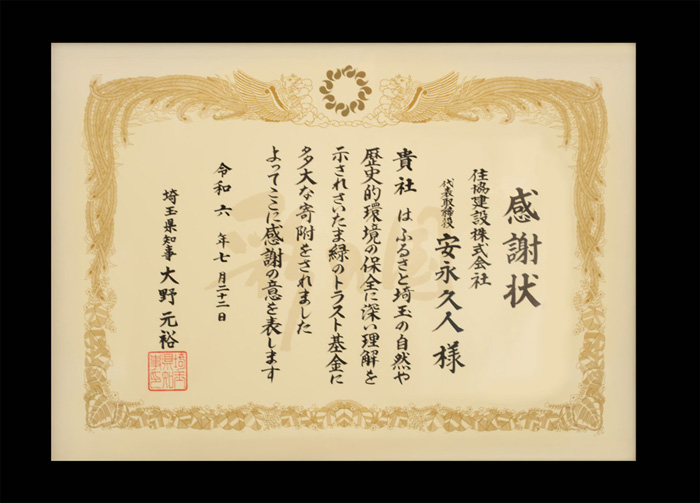 感謝状
住協建設株式会社
代表取締役 安永久人 様
貴社はふるさと埼玉の自然や
歴史的環境の保全に深い理解を
示されさいたま緑のトラスト基金に
多大な寄附をされました
よってここに感謝の意を表します
令和六年七月二十二日
埼玉県知事 大野元裕
埼玉県知事印
彩の国